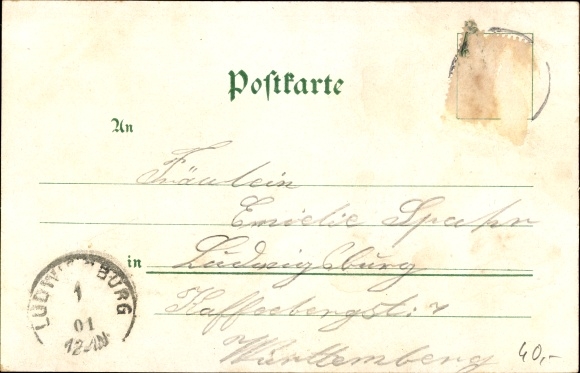 Postkarte
An
Fräulein
Emielie Spahr
in Ludwigsburg
Kaffeebergstr. 7
Württemberg
40,-
LUDWIGSBURG
1
01
12-1N